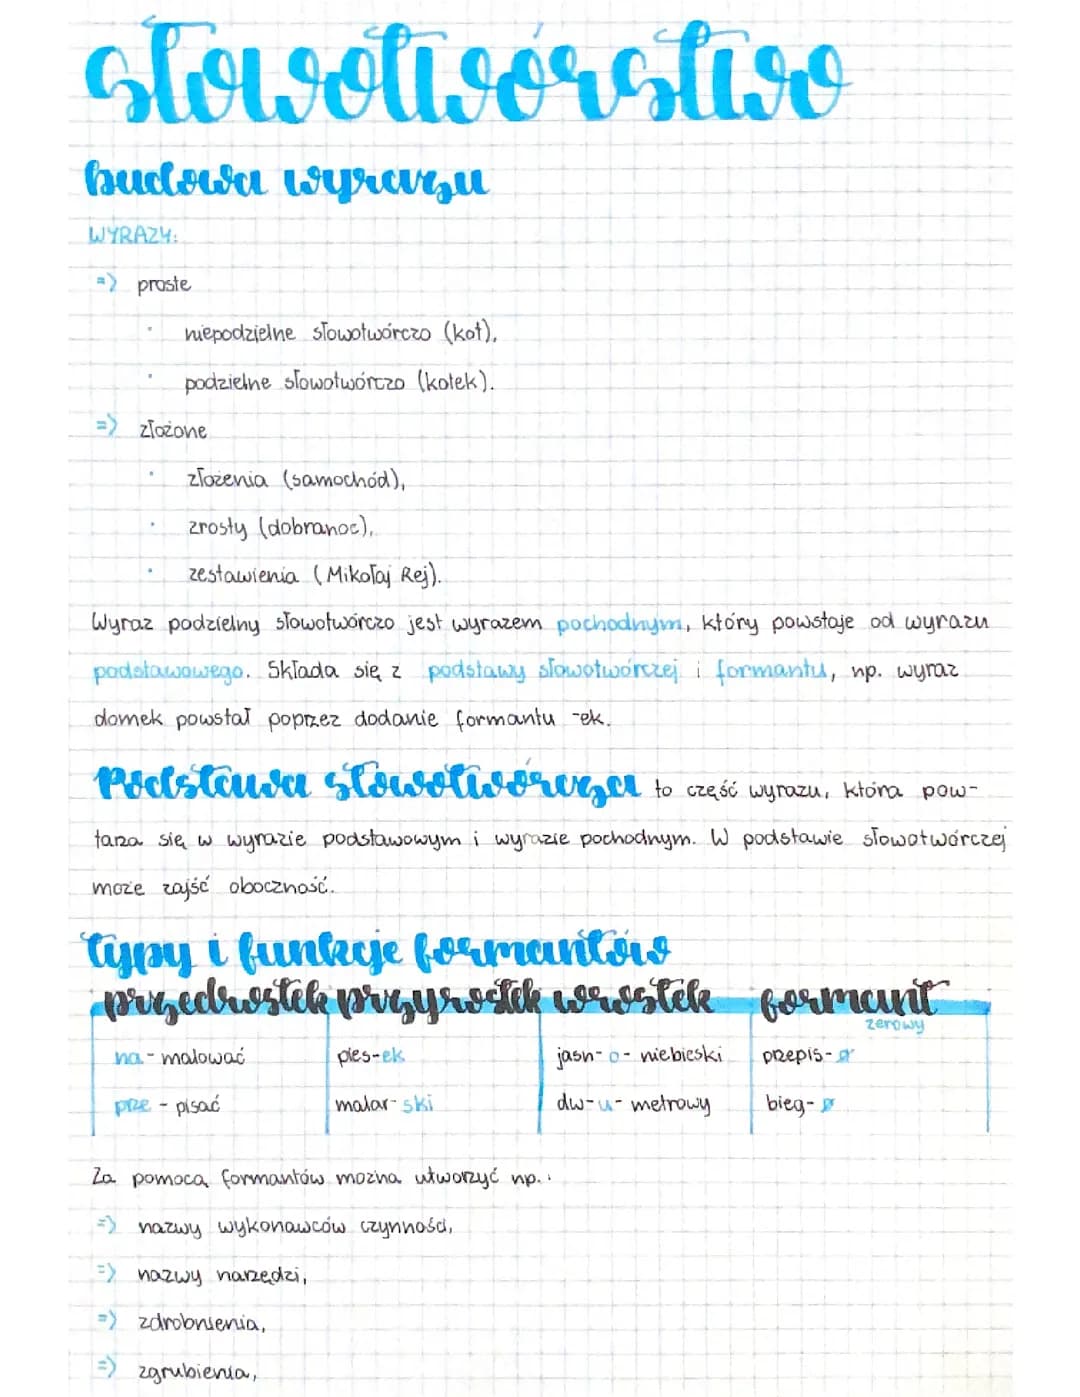 słowotwórstwo
budowa wyrazu
WYRAZY:
=> proste
· niepodzielne słowotwórczo (kot),
· podzielne słowotwórczo (kotek).
=> złożone
· złożenia (samochód),
· zrosty (dobranoc),
· zestawienia (Mikołaj Rej).
Wyraz podzielny słowotwórczo jest wyrazem pochodnym, który powstaje od wyrazu
podstawowego. Składa się z podstawy słowotwórczej i formantu, np. wyraz
domek powstał poprzez dodanie formantu -ek.
Podstawa słowotwórcza to część wyrazu, która pow-
tarza się w wyrazie podstawowym i wyrazie pochodnym. W podstawie słowotwórczej
może zajść oboczność.
typy i funkcje formantów
przedrostek przyrostek wrostek formant
zerowy
na - malować pies-ek jasn- o - niebieski przepis- ø
prze - pisać malar- ski dw-u- metrowy bieg- ø
Za pomocą formantów można utworzyć np.:
=> nazwy wykonawców czynności,
=> nazwy narzędzi,
=> zdrobnienia,
=> zgrubienia,